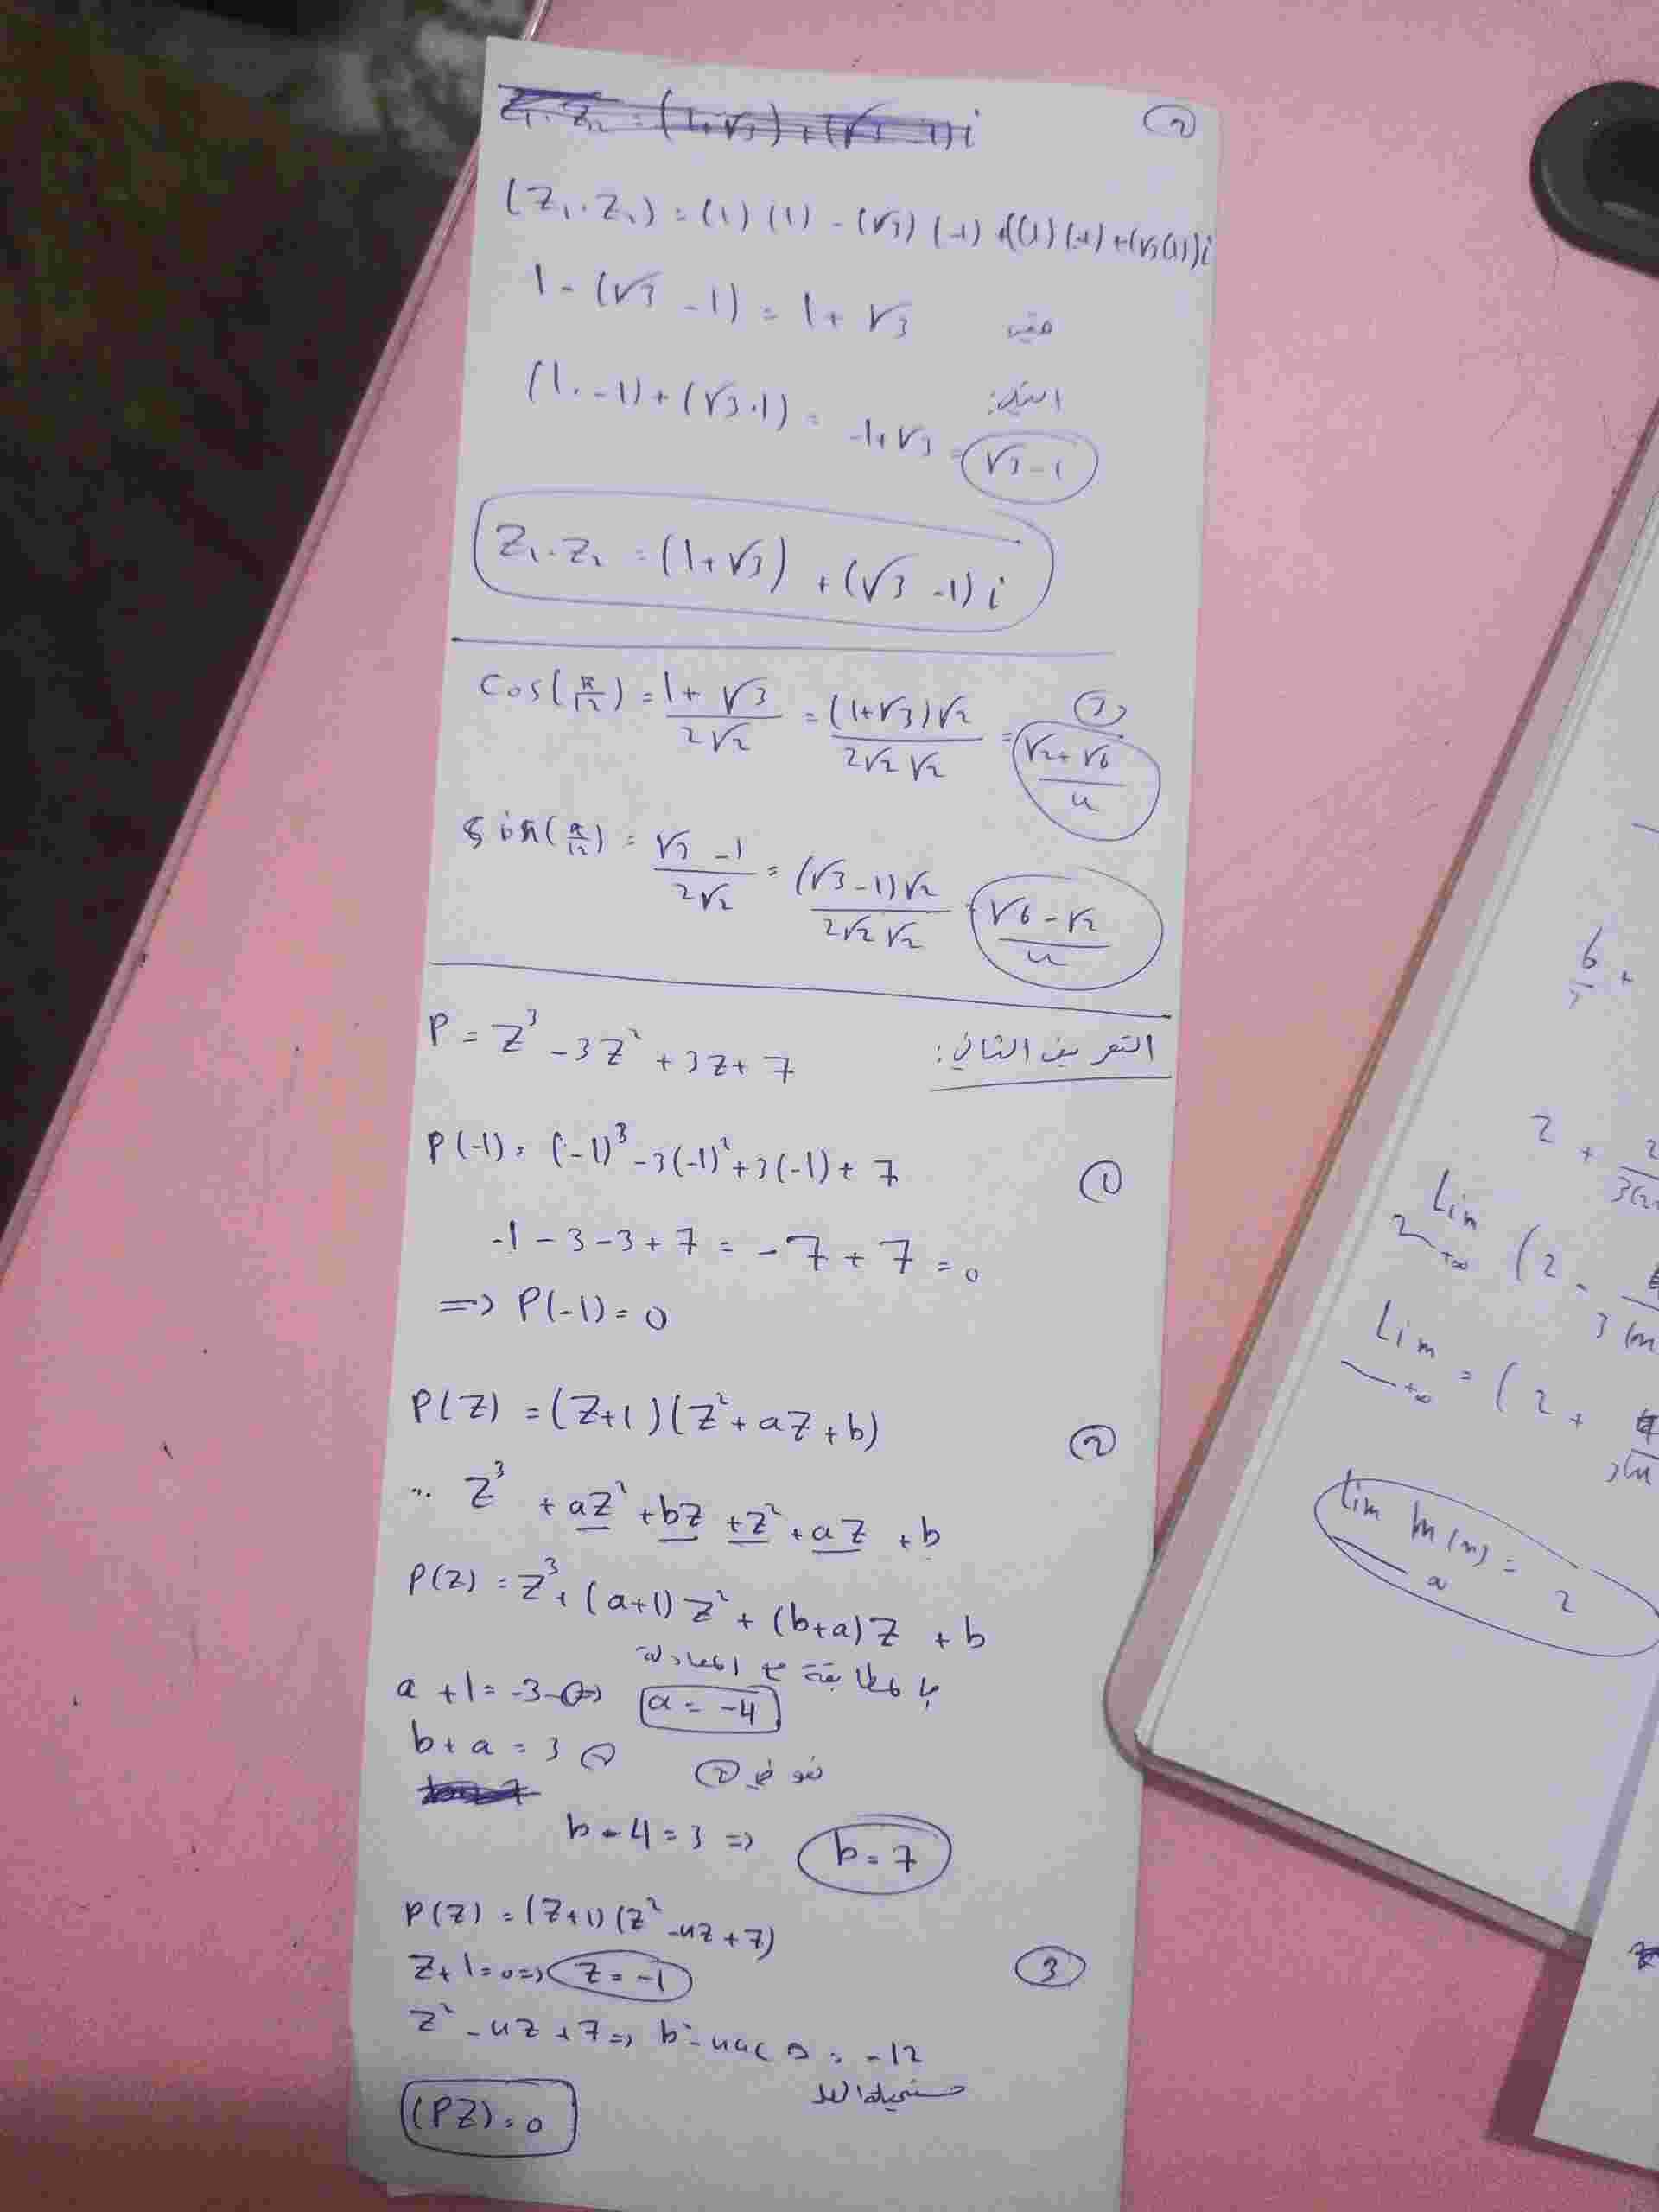 Z₁.Z₂ = (1+√3)+(√3-1)i
②
(Z₁.Z₂) = (1)(1) - (√3)(-1)+((1)(-1)+(√3)(1))i
1 - (√3 -1) = 1+√3
(1.-1)+(√3.1) = -1+√3 = √3-1
Z₁.Z₂ = (1+√3) +(√3 -1)i
cos(π/12) = (1+√3)/(2√2) = ((1+√3)√2)/(2√2 √2) = (√2+√6)/4
③
sin(π/12) = (√3-1)/(2√2) = ((√3-1)√2)/(2√2 √2) = (√6-√2)/4
التمرين الثاني:
P = Z³ -3Z² +3Z+7
P(-1) = (-1)³-3(-1)²+3(-1)+7
①
-1-3-3+7 = -7+7 = 0
=> P(-1)=0
P(Z) = (Z+1)(Z²+aZ+b)
②
.. Z³ +aZ² +bZ +Z² +aZ +b
P(Z) = Z³+(a+1)Z²+(b+a)Z +b
بالمطابقة مع المعادلة
a+1=-3 => a = -4
b+a = 3 ②
نعوض في ②
b-4=3 => b=7
P(Z) = (Z+1)(Z²-4Z+7)
Z+1=0=> Z=-1
③
Z²-4Z+7=> b²-4ac Δ = -12
مستحيلة الحل
(PZ)=0
6
2 +
Lim
(2 -
Lim = (2 +
lim h(n) = 2